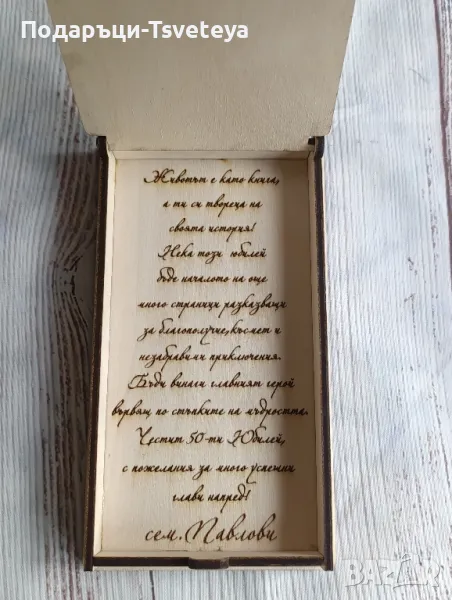 Подаръци-Tsveteya
Животът е като книга,
а ти си твореца на
своята история!
Нека този юбилей
бъде началото на още
много страници разказващи
за благополучие,късмет и
незабравими приключения.
Бъди винаги главният герой
вървящ по стъпките на мъдростта.
Честит 50-ти Юбилей,
с пожелания за много успешни
глави напред!
сем. Павлови
BAZAR